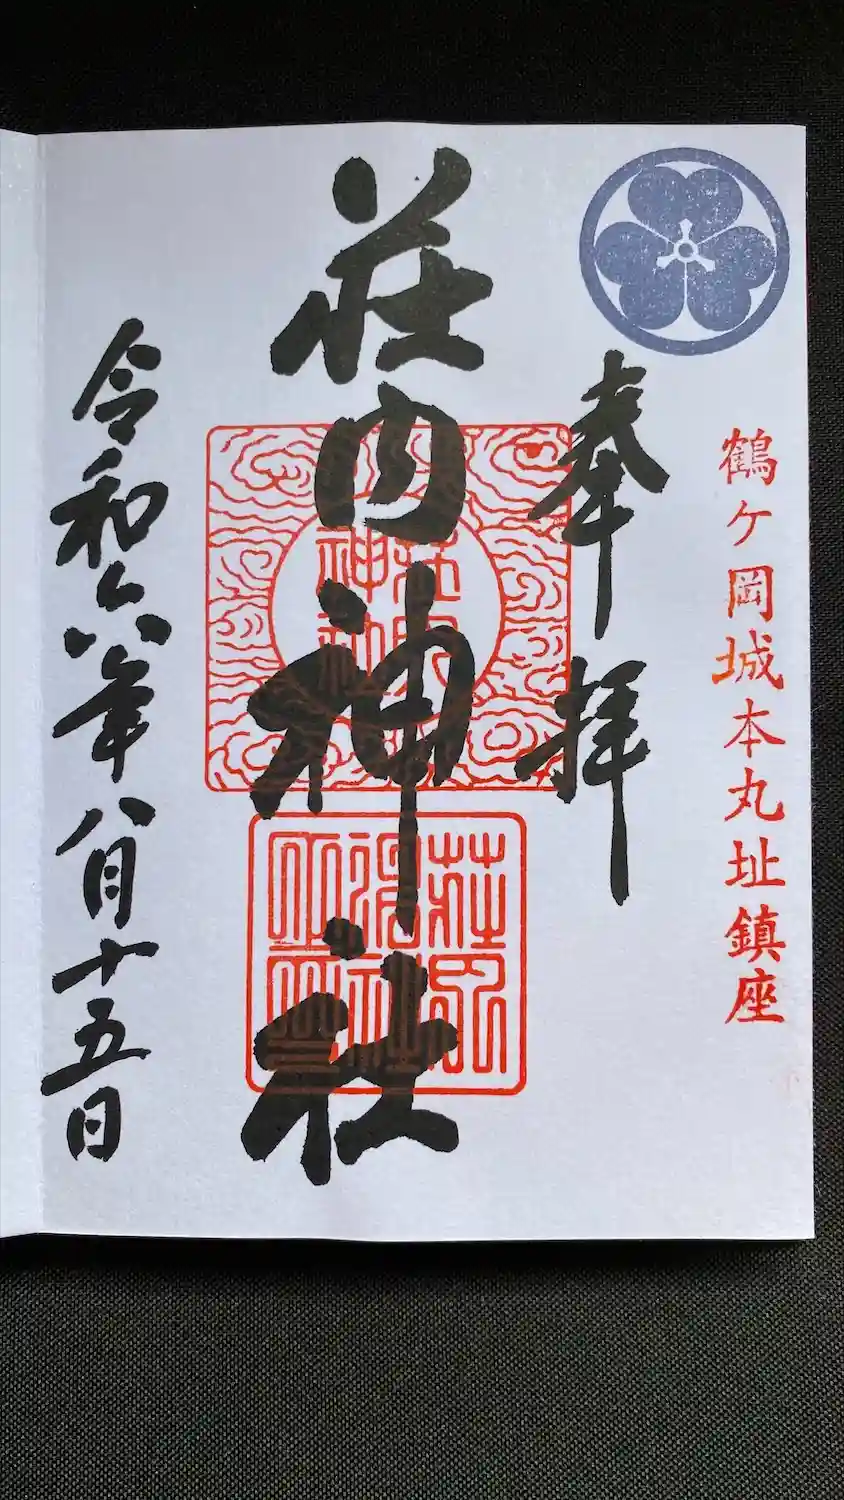 鶴ヶ岡城本丸址鎮座
奉拝
荘内神社
荘内神社
令和六年八月十五日